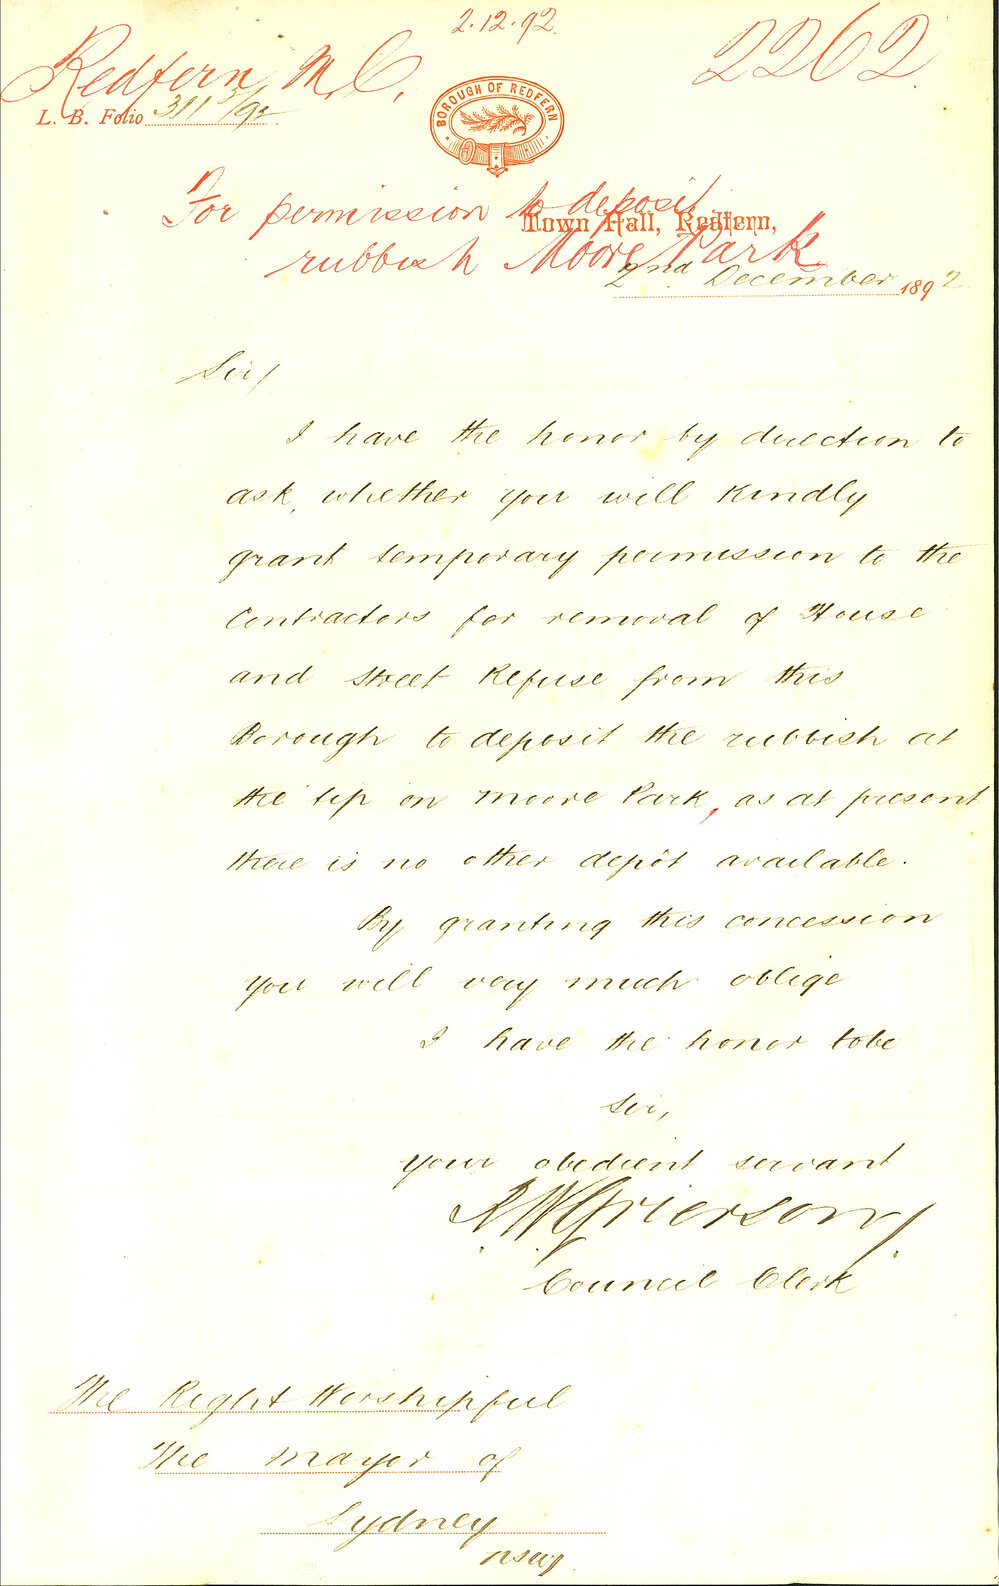 2.12.92.
2262
Redfern M. C.
L. B. Folio 311 5/92
BOROUGH OF REDFERN
For permission to deposit
Town Hall, Redfern,
rubbish Moore Park
2nd December 1892
Sir/
I have the honor by direction to
ask, whether you will kindly
grant temporary permission to the
Contractors for removal of House
and Street Refuse from this
Borough to deposit the rubbish at
the tip on Moore Park, as at present
there is no other depôt available.
By granting this concession
you will very much oblige
I have the honor tobe
Sir,
your obedient servant
Grierson
Council Clerk
The Right Worshipful
The Mayor of
Sydney
NSW